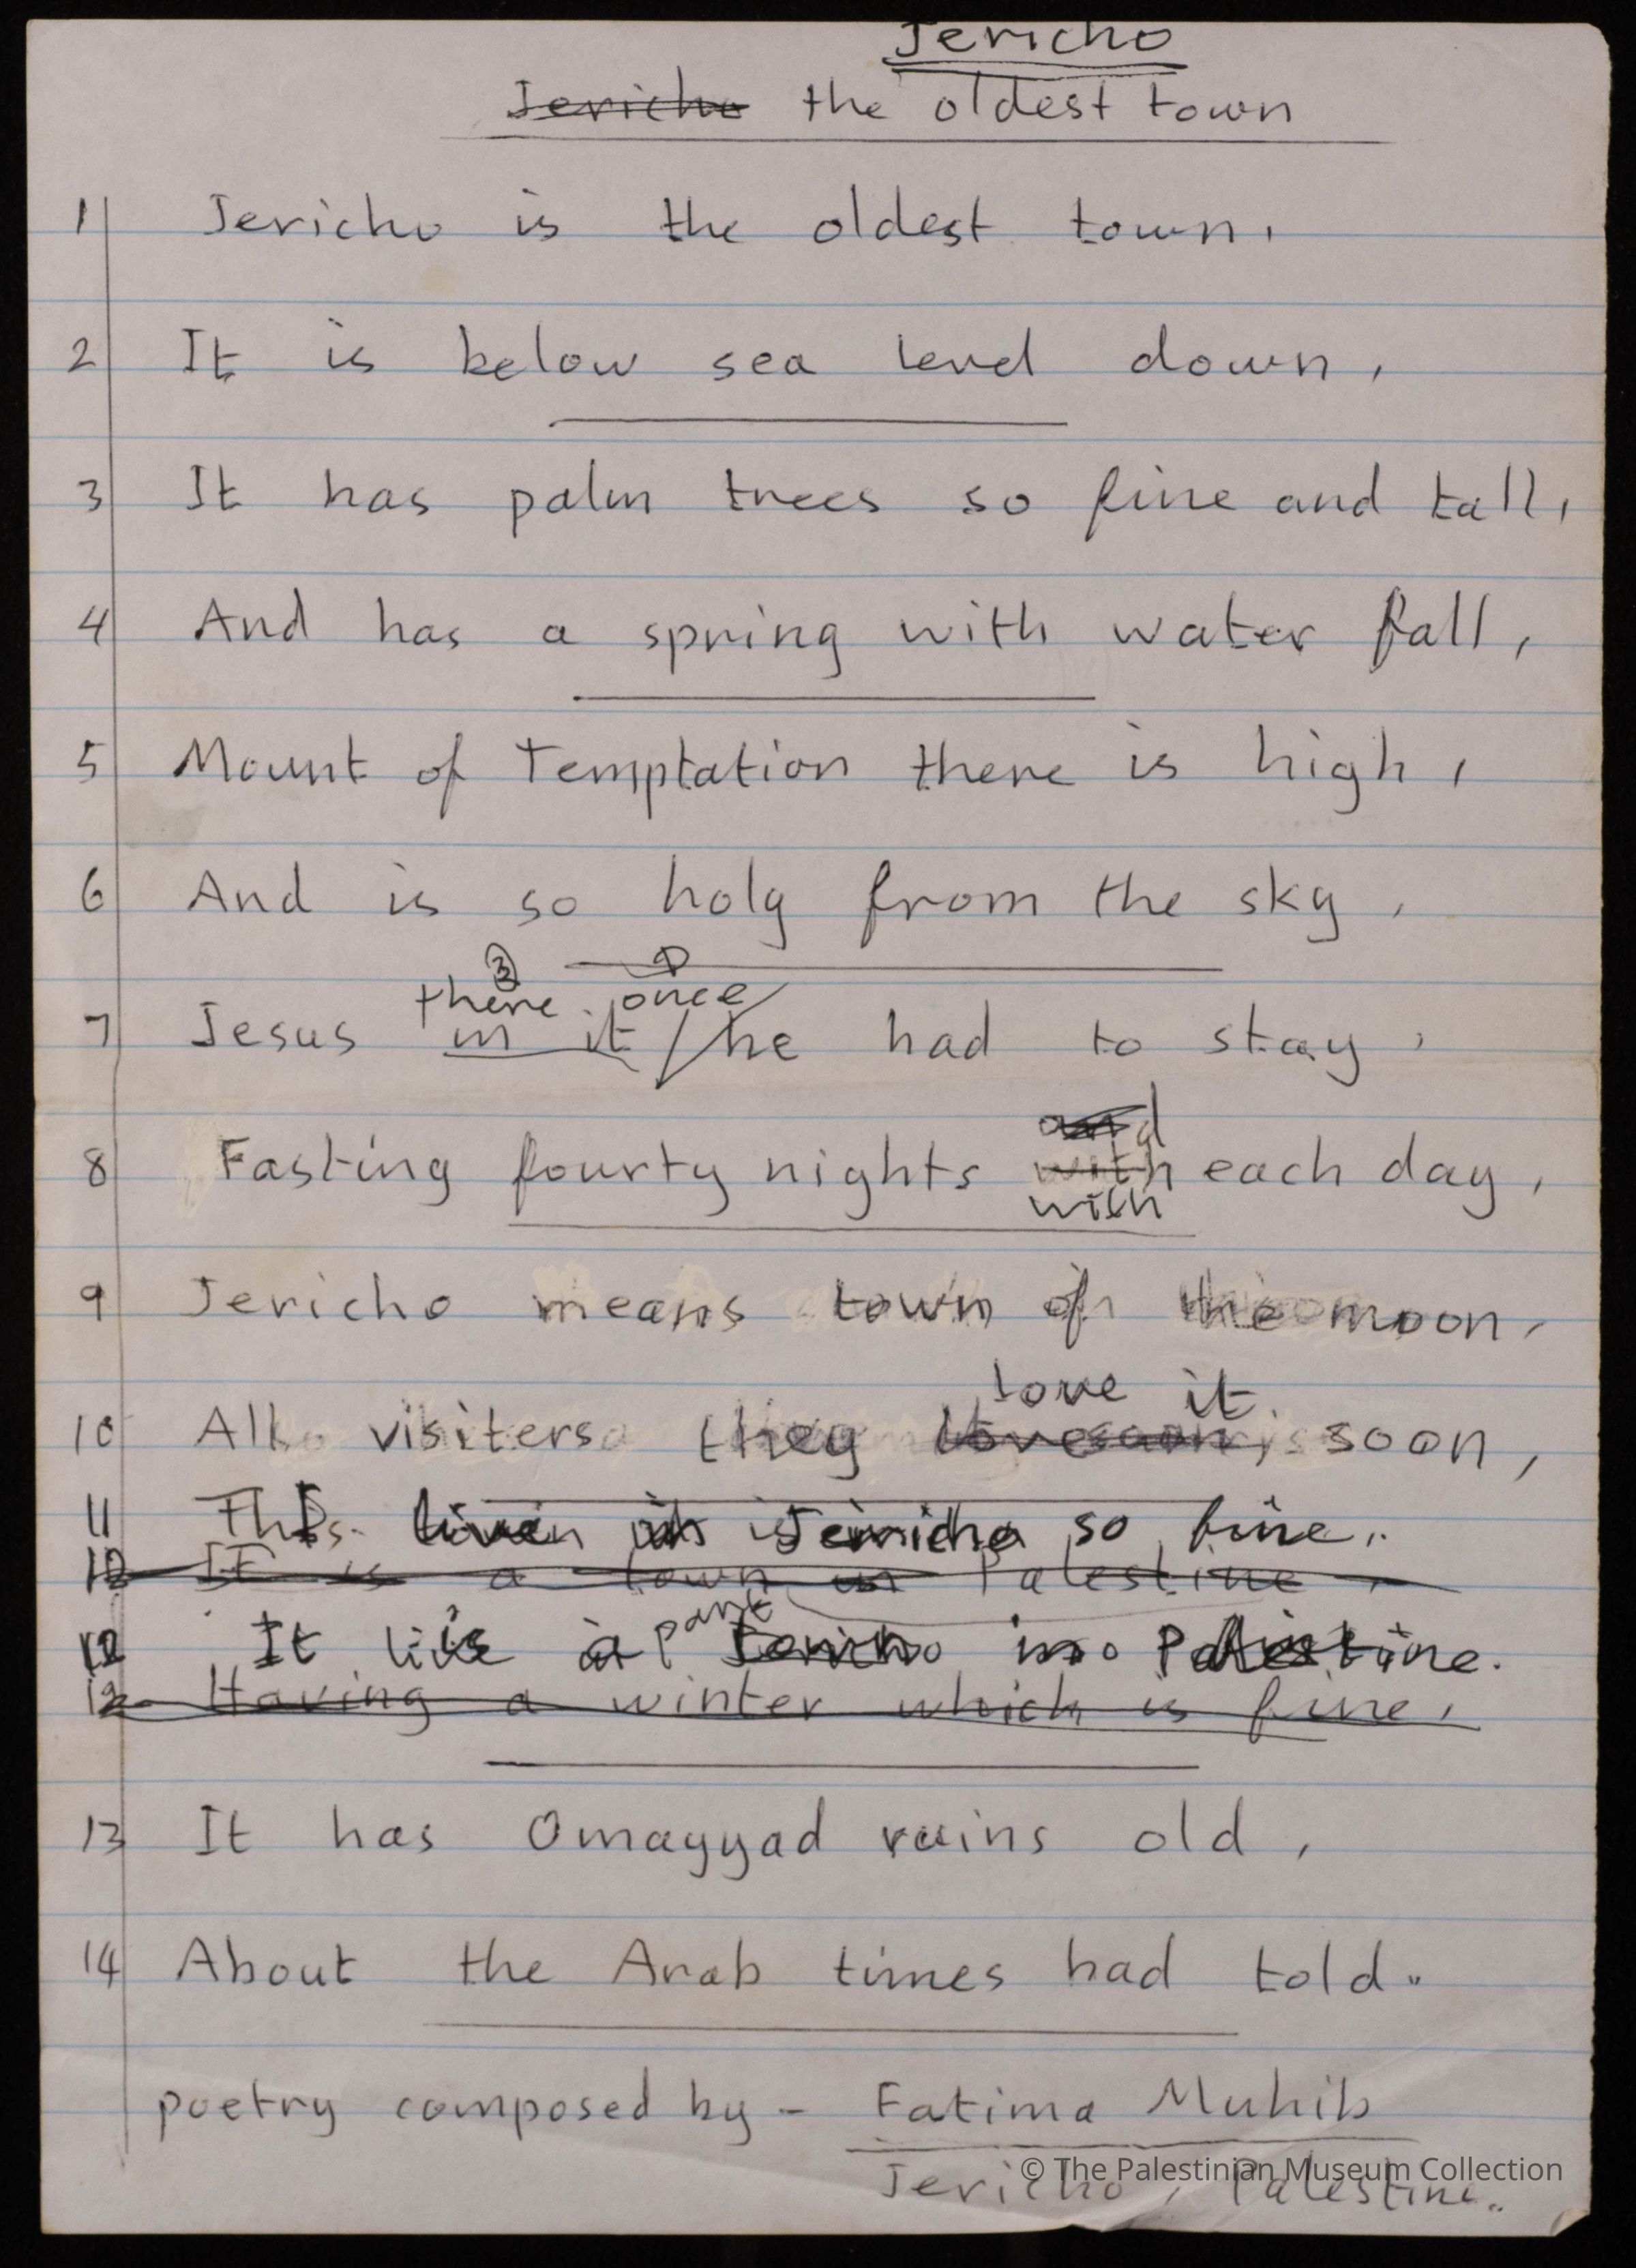 Jericho
Jericho the oldest town
1 Jericho is the oldest town,
2 It is below sea level down,
3 It has palm trees so fine and tall,
4 And has a spring with water fall,
5 Mount of Temptation there is high,
6 And is so holy from the sky,
3
there once
7 Jesus in it he had to stay,
and
8 Fasting fourty nights with each day,
with
9 Jericho means town of the moon,
love it
10 All visiters they soon,
11 Jericho so fine,
12 It is a town in Palestine,
park
12 It is a in Palestine.
12 Having a winter which is fine,
13 It has Omayyad ruins old,
14 About the Arab times had told.
poetry composed by - Fatima Muhib
Jericho, Palestine..
© The Palestinian Museum Collection